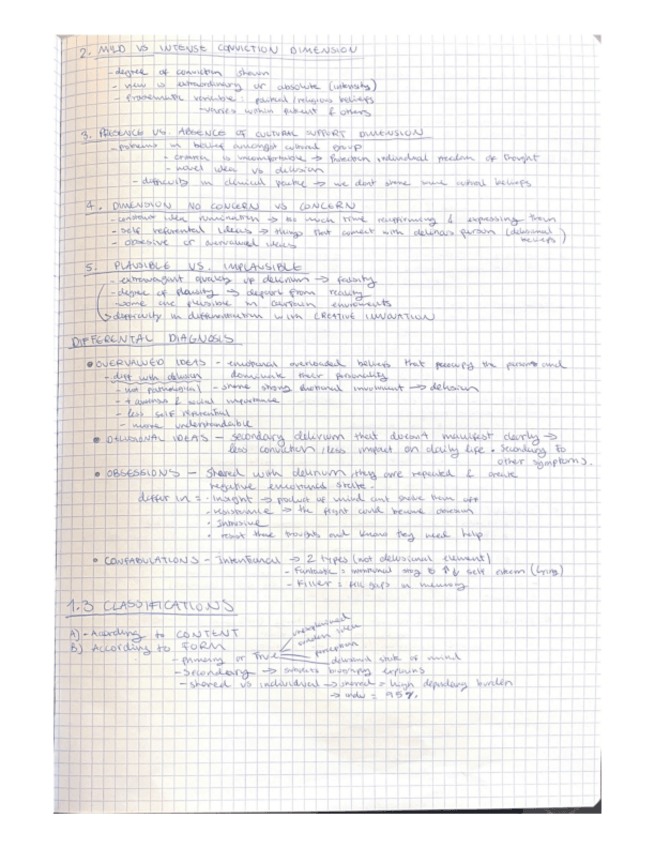 2. MILD VS INTENSE CONVICTION DIMENSION
- degree of conviction shown
- view is extraordinary or absolute (intensity)
- Problematic variable: political/religious beliefs
- varies within patient & others
3. PRESENCE VS. ABSENCE OF CULTURAL SUPPORT DIMENSION
- patterns in belief amongst cultural group
- is uncomfortable → individual freedom of thought
- novel idea vs delusion
- difficulty in clinical → we dont share same cultural beliefs
4. DIMENSION NO CONCERN VS CONCERN
- constant idea rumination → so much time reaffirming & expressing them
- self referential ideas → things that connect with delirious person (delusional beliefs)
- obsessive or overvalued ideas
5. PLAUSIBLE VS. IMPLAUSIBLE
- extravagant quality of delirium → falsity
- degree of → depart from reality
- some are plausible in certain enviroments
→ difficulty in differentiation with CREATIVE INNOVATION
DIFFERENTAL DIAGNOSIS
• OVERVALUED IDEAS - emotional overloaded beliefs that preocupy the persons and
- diff with delusion dominate their personality
- not pathological - share strong emotional involvment → delusion
- + & social importance
- less self referential
- more understandable
• DELUSIONAL IDEAS - secondary delirium that doesn't manifest clearly →
less conviction / less impact on daily life • Secondary to
other symptoms.
• OBSESSIONS - Shared with delirium, they are repeated & create
negative emotional state.
differ in = • Insight → product of mind cant shake them off
- → the fight could become
• Intrusive
• thoughts and know they need help
• CONFABULATIONS - Intentional → 2 types (not delusional element)
- Fantastic = intentional to ↑↓ self esteem (lying)
- Filler = fill gaps in memory
1.3 CLASSIFICATIONS
A) - According to CONTENT
B) According to FORM
- primary or True
sudden idea
perception
delusional state of mind
- Secondary → biography explains
- shared vs individual → shared = high dependency burden
→ = 95%